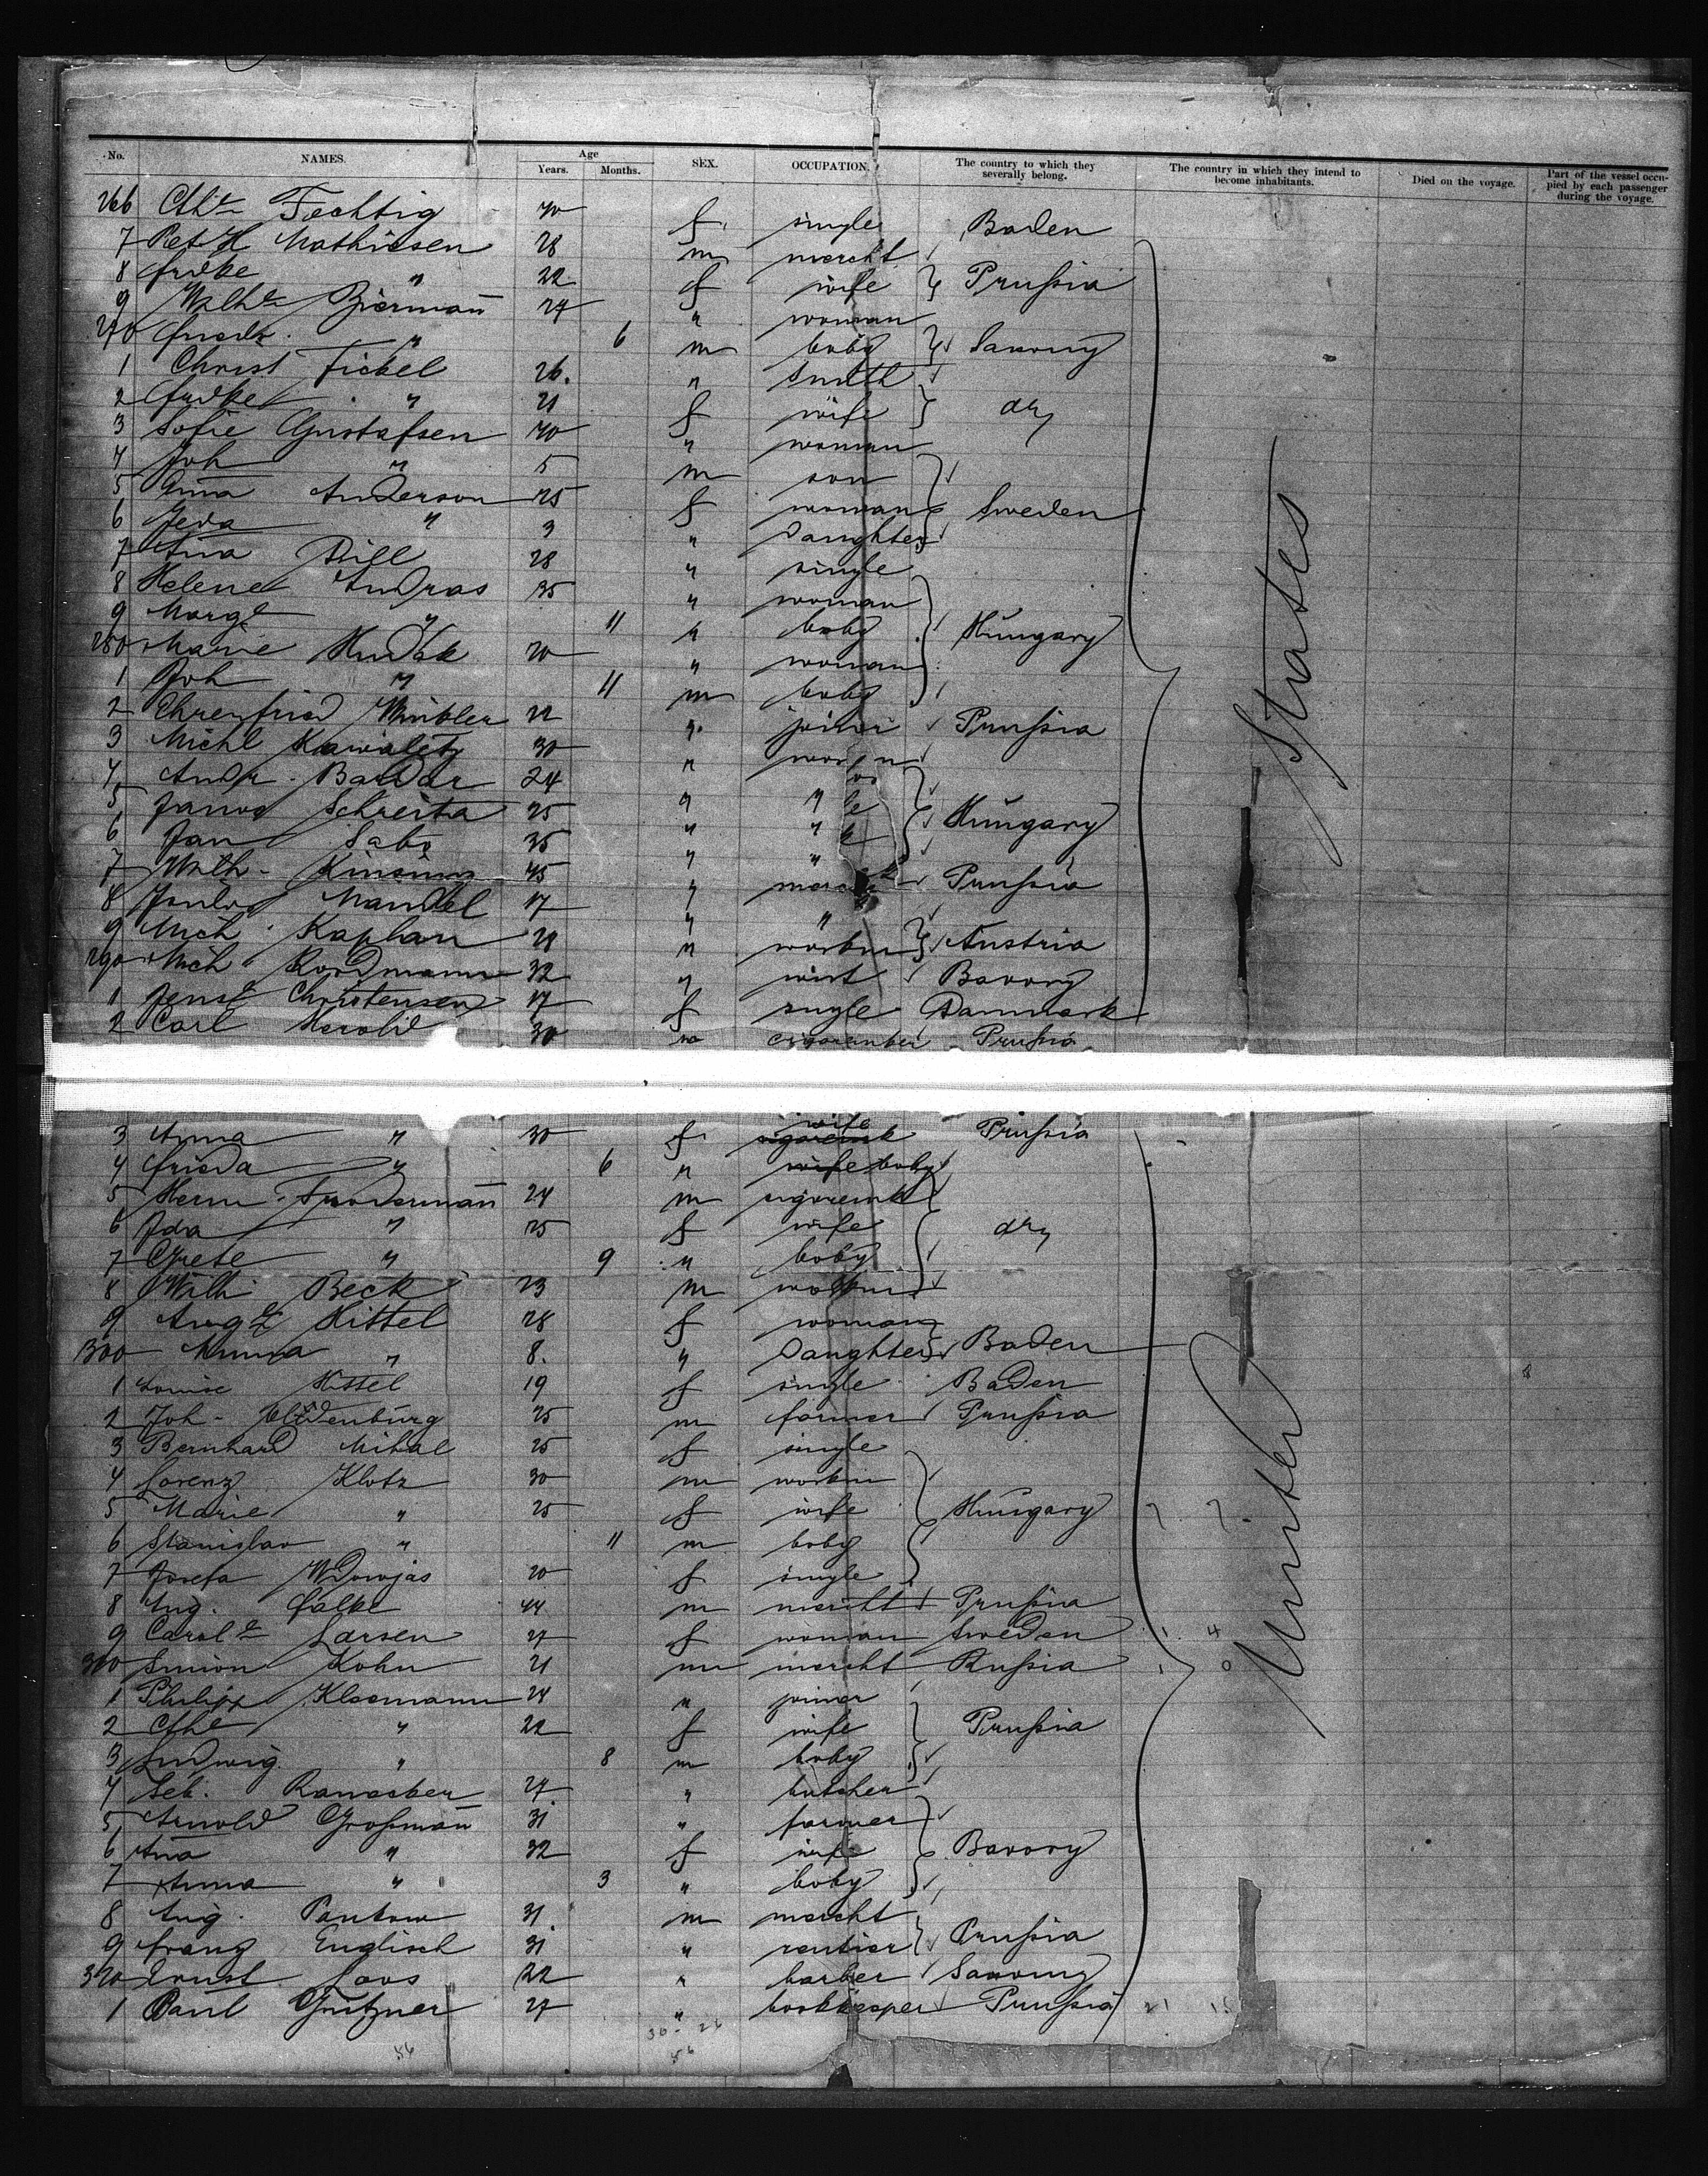 No. NAMES. Age Years. Months. SEX. OCCUPATION. The country to which they severally belong. The country in which they intend to become inhabitants. Died on the voyage. Part of the vessel occupied by each passenger during the voyage.
266 Cthe Fechtig f. single Baden
7 Pet H Mathiesen 28 m mercht
8 frdke " 22 f wife Prußia
9 Wilhe Bierman̄ 27 " woman
270 friedr. " 6 m baby Saxony
1 Christ Fickel 26. " Smith
2 frdke " 21 f wife do
3 Sofie Gustafsen " woman
4 Joh " 5 m son
5 Anna Anderson 25 f woman Sweden
6 " 3 " Daughter
7 Ana Dill 28 " single
8 Helene Andras 35 " woman
9 Marge " 11 " baby Hungary
280 Marie Hudak 20 " woman
1 Joh " 11 m baby
2 Ehrenfried Winkler 22 " joiner Prußia
3 Michl 30 "
4 Andr. 24 " "
5 Janos 25 " " Hungary
6 Jan Sabo 35 " "
7 Wilh. 45 " Prußia
8 Mandel 17 " "
9 Mich. Kaplan 28 " workm Austria
290 Mich. Rordmann 32 " wirt Bavory
1 Jense Christensen 17 f single Danmark
2 Carl Herold 30 m Prußia
3 Anna " 30 f wife Prußia
4 frieda " 6 " baby
5 Herm. 24 m
6 Ida " 25 f wife do
7 Grete " 9 " baby
8 Wilh. Beck 23 m workm
9 Augte Hittel 28 f woman
300 Minna " 8. " Daughter Baden
1 Louise Hittel 19 f single Baden
2 Joh. Oldenburg 25 m farmer Prußia
3 Bernhard Mihal 25 f single
4 Lorenz Klotz 30 m workm
5 Marie " 25 f wife Hungary
6 Stanislav " 11 m baby
7 Josefa Wdowjas 20 f single
8 Aug. falke 44 m mercht Prußia
9 Carole Larsen 27 f woman Sweden
310 Simon Kohn 21 m mercht Rußia
1 Philipp Kleemann 24 " joiner
2 Cthe " 22 f wife Prußia
3 Ludwig " 8 m baby
4 Seb. 27 " butcher
5 Arnold Großman̄ 31 " farmer
6 Ana " 32 f wife Bavory
7 Anna " 3 " baby
8 Aug. Pankow 31 m mercht
9 franz Englisch 31 " rentier Prußia
320 Ernst Loos 22 " barber Saxony
1 Paul Grützner 27 " bookkeeper Prußia
United States